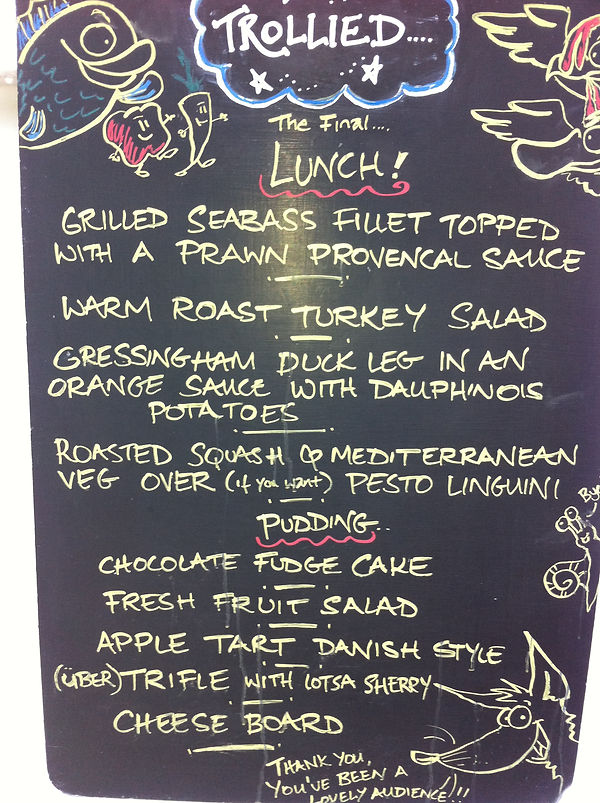 TROLLIED....
The Final....
LUNCH!
GRILLED SEABASS FILLET TOPPED
WITH A PRAWN PROVENCAL SAUCE
WARM ROAST TURKEY SALAD
GRESSINGHAM DUCK LEG IN AN
ORANGE SAUCE WITH DAUPHINOIS
POTATOES
ROASTED SQUASH & MEDITERRANEAN
VEG OVER (if you want) PESTO LINGUINI
Bye
PUDDING..
CHOCOLATE FUDGE CAKE
FRESH FRUIT SALAD
APPLE TART DANISH STYLE
(ÜBER) TRIFLE WITH LOTSA SHERRY
CHEESE BOARD
THANK YOU,
YOU'VE BEEN A
LOVELY AUDIENCE!!!